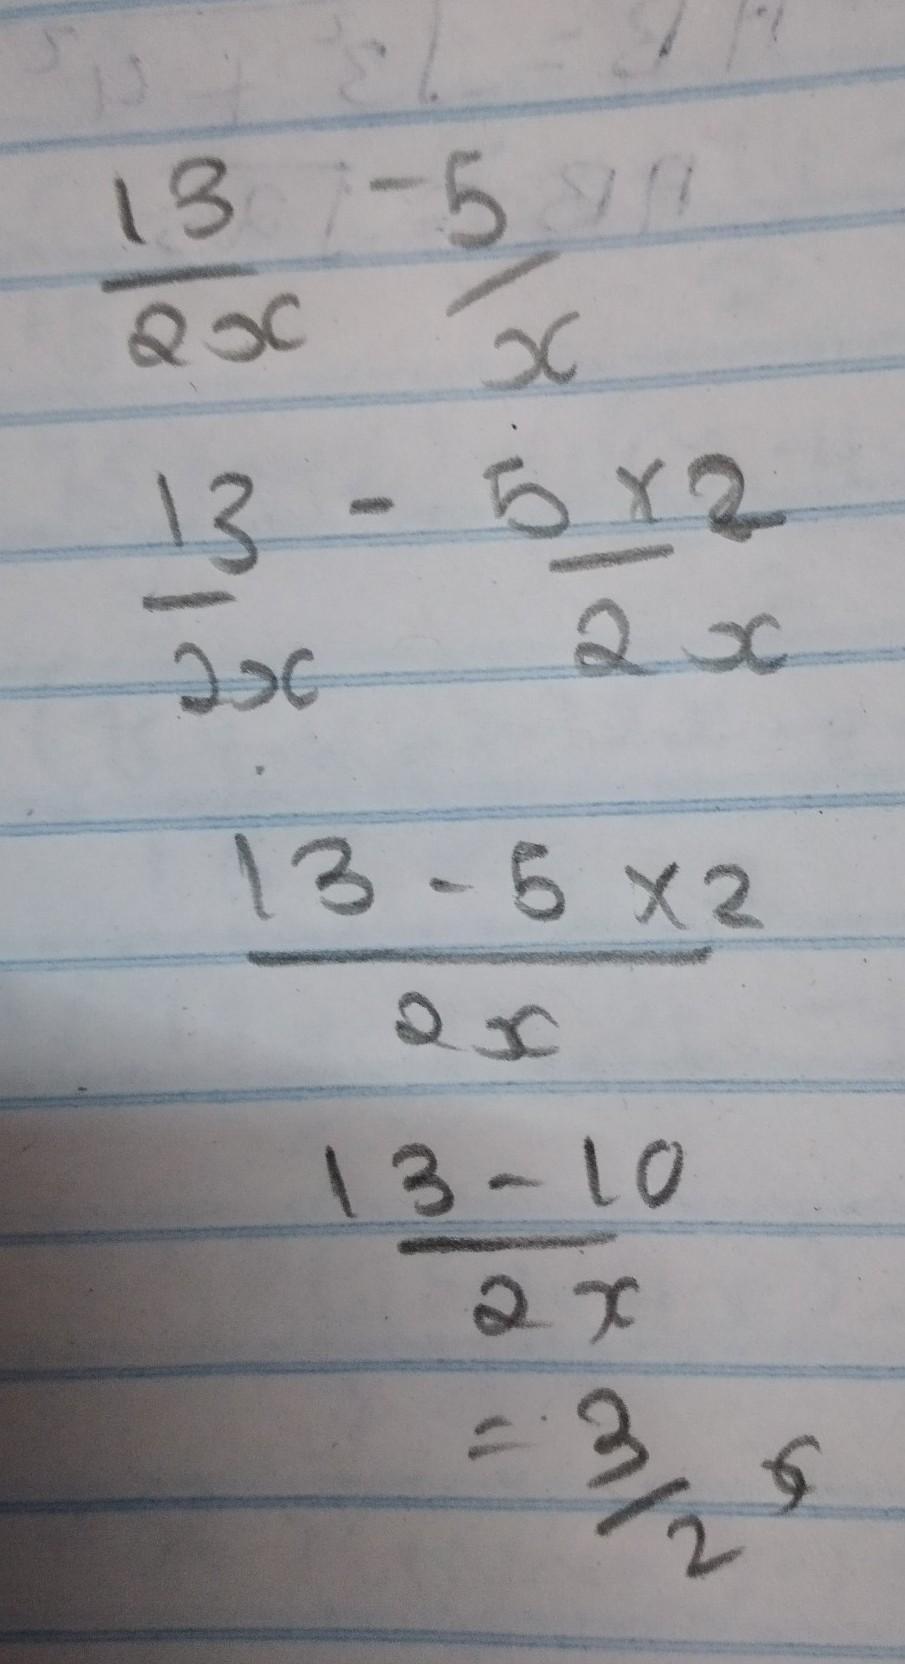 13/2x - 5/x
13/2x - 5 x 2/2x
13 - 5 x 2/2x
13 - 10/2x
= 3/2